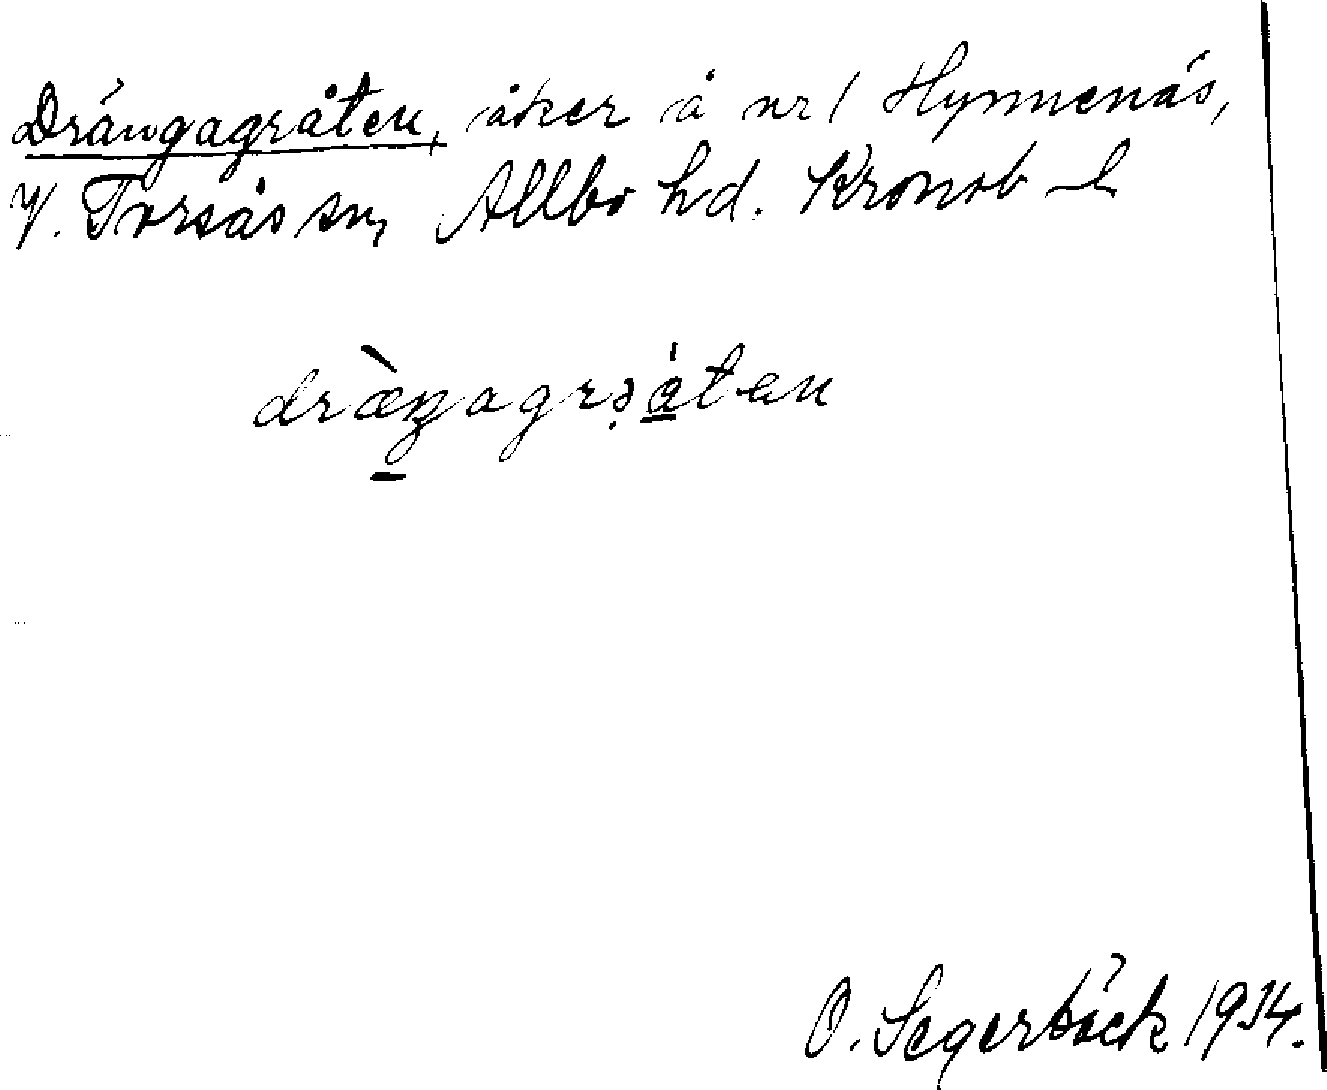 Drängagråten, åker å nr 1 Hymmenäs,
V. Torsås sn, Allbo hd. Kronob l
dræ̀ŋagrǝáten
O. Segerbäck 1934.